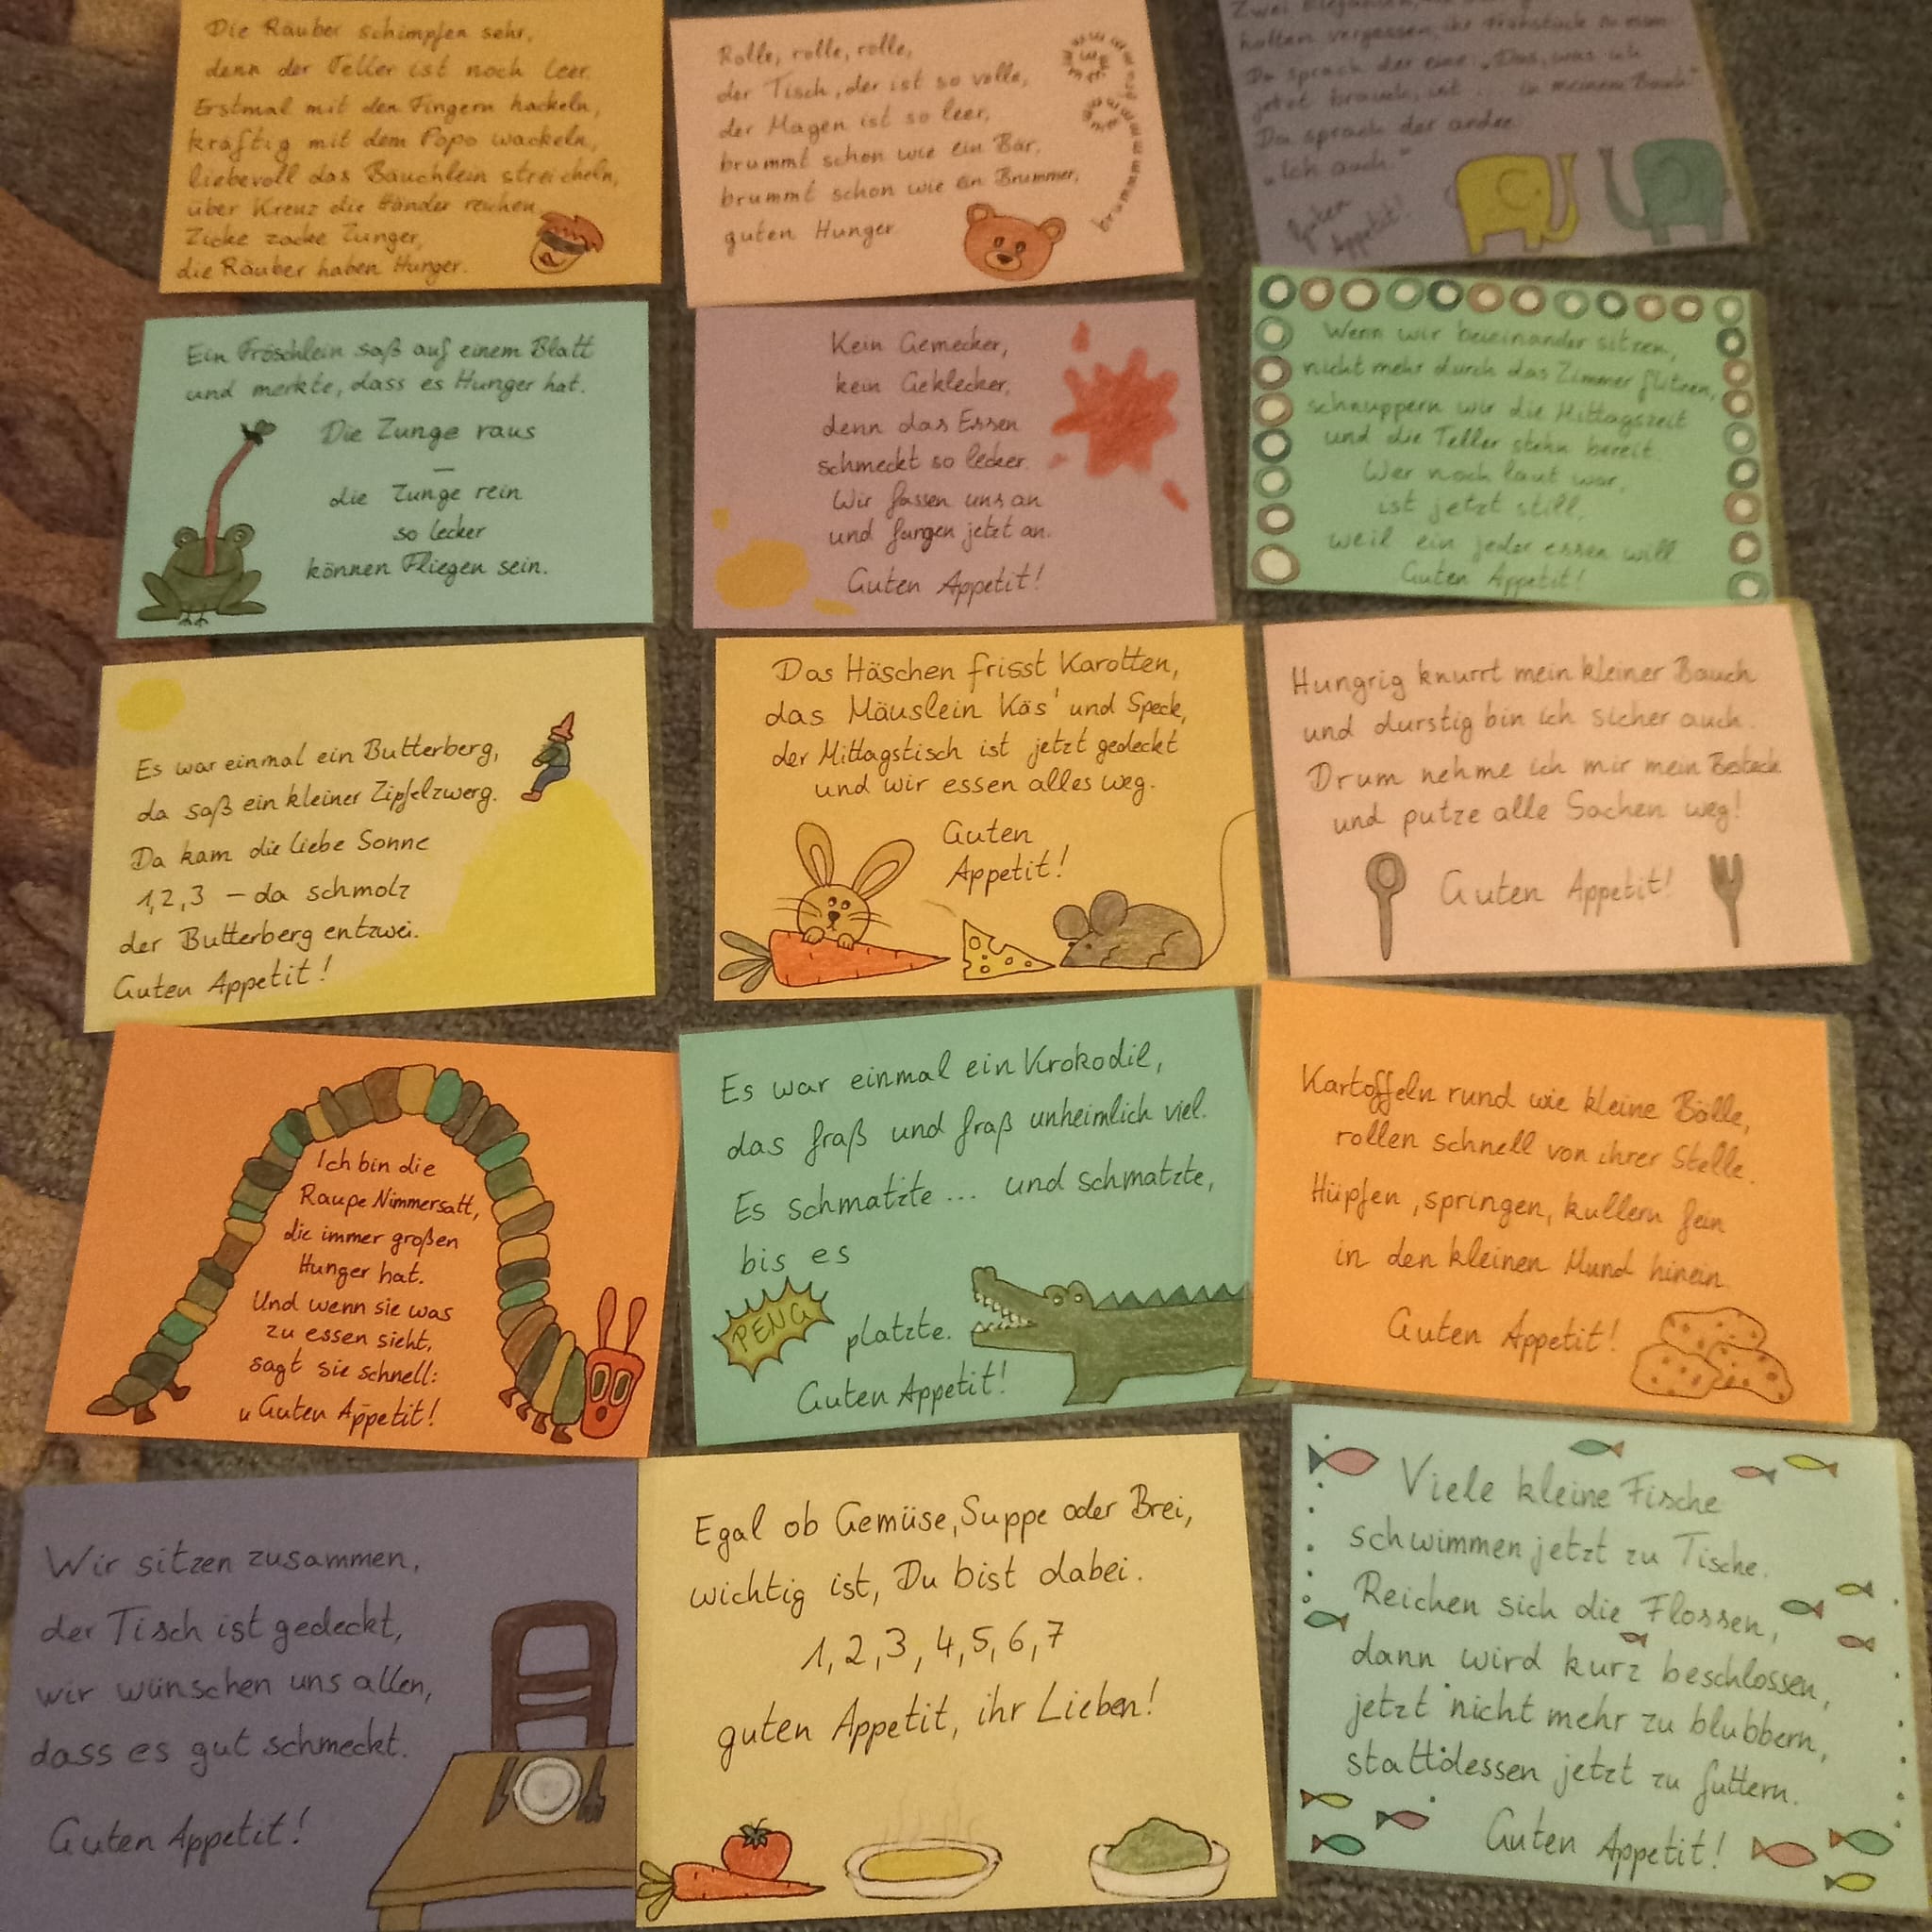 Die Räuber schimpfen sehr,
denn der Teller ist noch leer.
Erstmal mit den Fingern hackeln,
kräftig mit dem Popo wackeln,
liebevoll das Bäuchlein streicheln,
über Kreuz die Hände reichen
Zicke zacke Zunger,
die Räuber haben Hunger.
Rolle, rolle, rolle,
der Tisch, der ist so volle,
der Magen ist so leer,
brummt schon wie ein Bär,
brummt schon wie ein Brummer,
guten Hunger
Zwei
hatten vergessen, ihr Frühstück zu
Da sprach der eine: „Das, was ich
jetzt brauch, ist ... in meinem Bauch"
Da sprach der andere:
„Ich auch."
Guten
Appetit!
Ein Fröschlein saß auf einem Blatt
und merkte, dass es Hunger hat.
Die Zunge raus
–
die Zunge rein
so lecker
können Fliegen sein.
Kein Gemecker,
kein Geklecker,
denn das Essen
schmeckt so lecker.
Wir fassen uns an
und fangen jetzt an.
Guten Appetit!
Wenn wir beieinander sitzen,
nicht mehr durch das Zimmer flitzen,
schnuppern wir die Mittagszeit
und die Teller stehn bereit.
Wer noch laut war,
ist jetzt still,
weil ein jeder essen will
Guten Appetit!
Es war einmal ein Butterberg,
da saß ein kleiner Zipfelzwerg.
Da kam die liebe Sonne
1,2,3 – da schmolz
der Butterberg entzwei.
Guten Appetit!
Das Häschen frisst Karotten,
das Mäuslein Käs' und Speck,
der Mittagstisch ist jetzt gedeckt
und wir essen alles weg.
Guten
Appetit!
Hungrig knurrt mein kleiner Bauch
und durstig bin ich sicher auch.
Drum nehme ich mir mein Besteck
und putze alle Sachen weg!
Guten Appetit!
Ich bin die
Raupe Nimmersatt,
die immer großen
Hunger hat.
Und wenn sie was
zu essen sieht,
sagt sie schnell:
„Guten Appetit!
Es war einmal ein Krokodil,
das fraß und fraß unheimlich viel.
Es schmatzte ... und schmatzte,
bis es
PENG
platzte.
Guten Appetit!
Kartoffeln rund wie kleine Bölle,
rollen schnell von ihrer Stelle.
Hüpfen, springen, kullern fein
in den kleinen Mund hinein.
Guten Appetit!
Wir sitzen zusammen,
der Tisch ist gedeckt,
wir wünschen uns allen,
dass es gut schmeckt.
Guten Appetit!
Egal ob Gemüse, Suppe oder Brei,
wichtig ist, Du bist dabei.
1, 2, 3, 4, 5, 6, 7
guten Appetit, ihr Lieben!
Viele kleine Fische
schwimmen jetzt zu Tische.
Reichen sich die Flossen,
dann wird kurz beschlossen,
jetzt nicht mehr zu blubbern,
stattdessen jetzt zu futtern.
Guten Appetit!